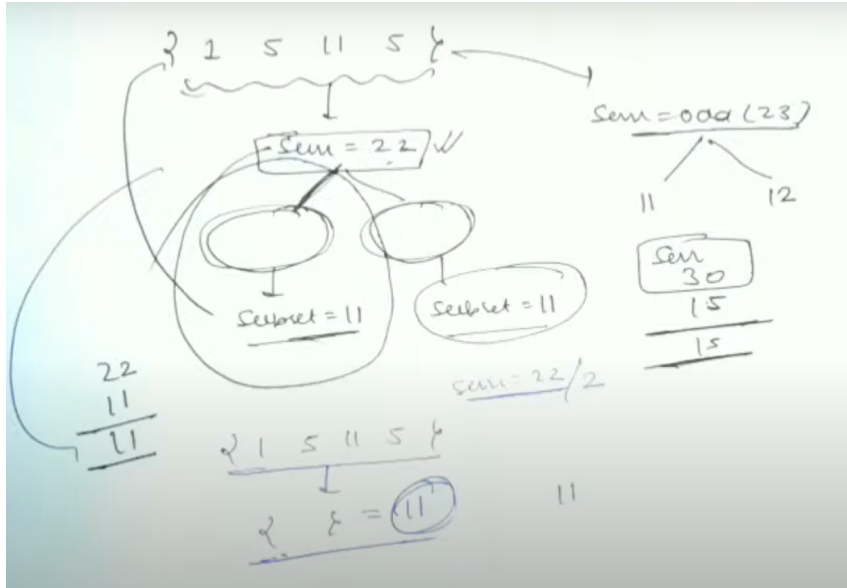 { 1 5 11 5 }
Sum = 22
Sum = odd (23)
11 12
Sum
30
15
15
Subset = 11
Subset = 11
22
11
11
Sum = 22/2
{ 1 5 11 5 }
{ } = 11
11